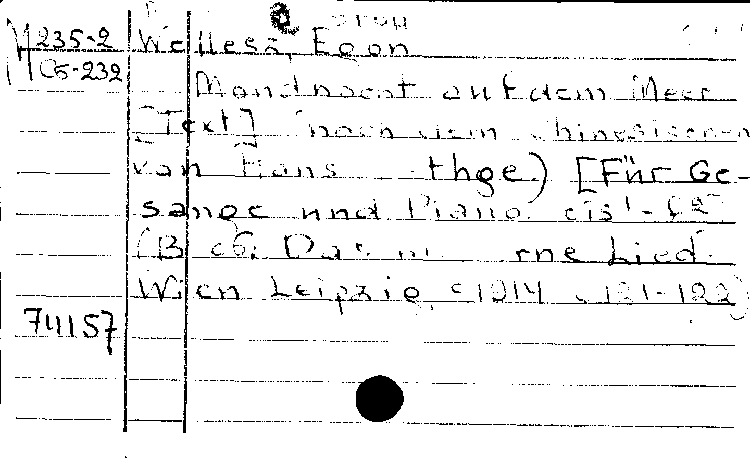 М 235-2 Wellesz, Egon
Сб-232
Mondnacht auf dem Meer
[Text] (nach dem Chinesischen
von Hans thge.) [Für Ge-
sange und Piano. cis¹-
(В сб: Das m rne Lied.
Wien Leipzig, c 1914, с 121-122)
74157